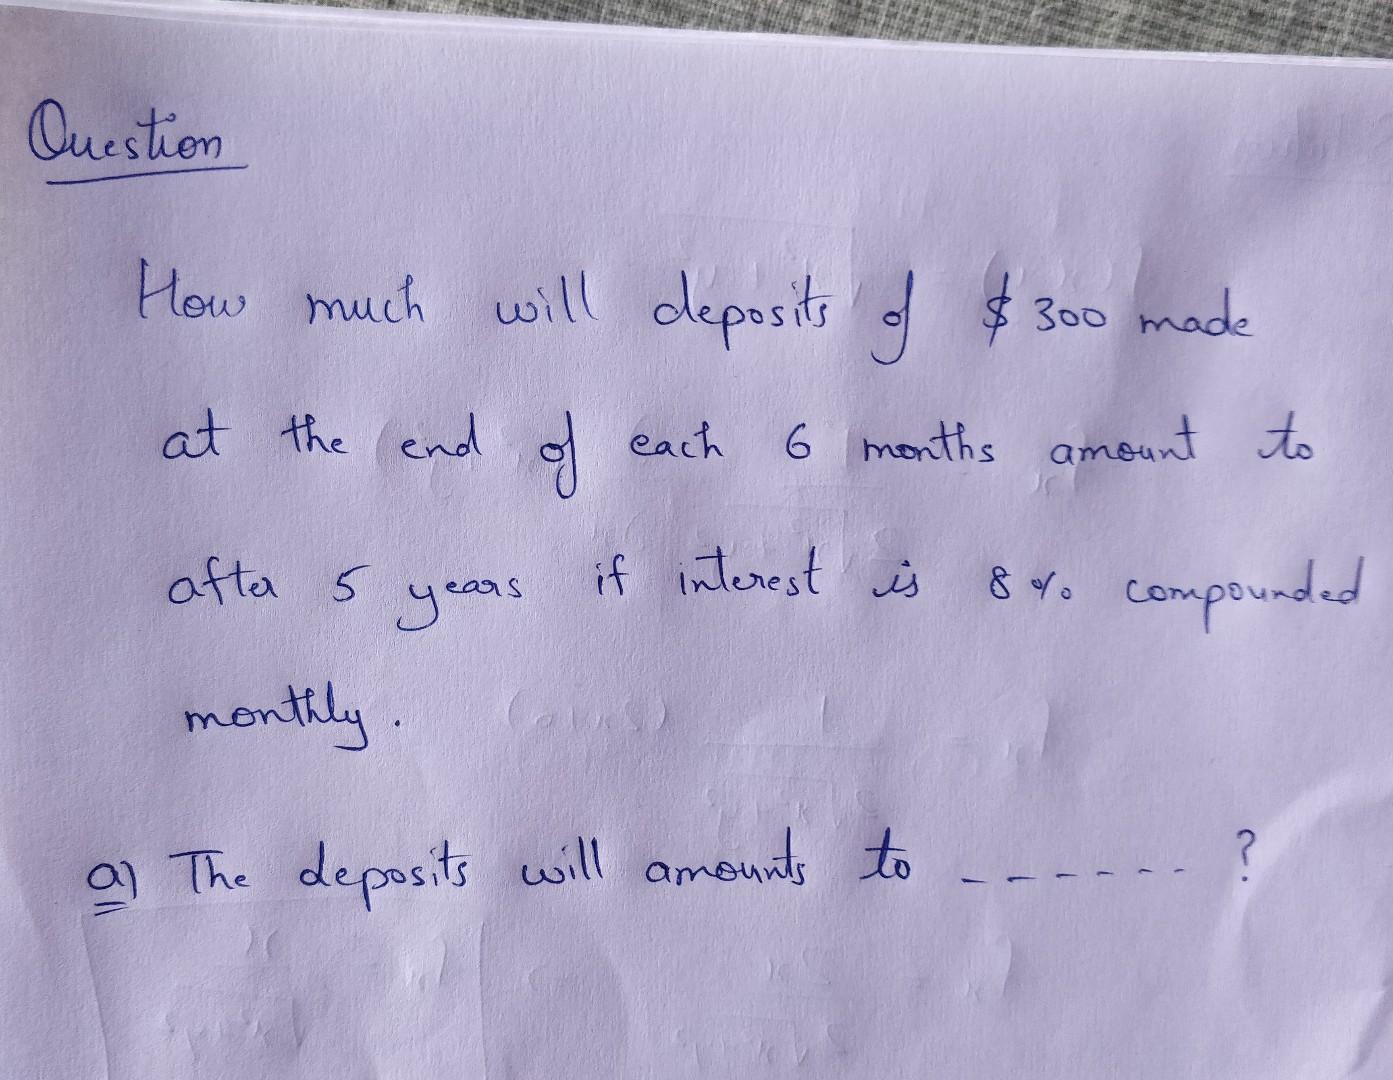 Question
How much will deposits of $300 made
at the end of each 6 months amount to
after 5 years if interest is 8% compounded
monthly.
a) The deposits will amounts to ------?